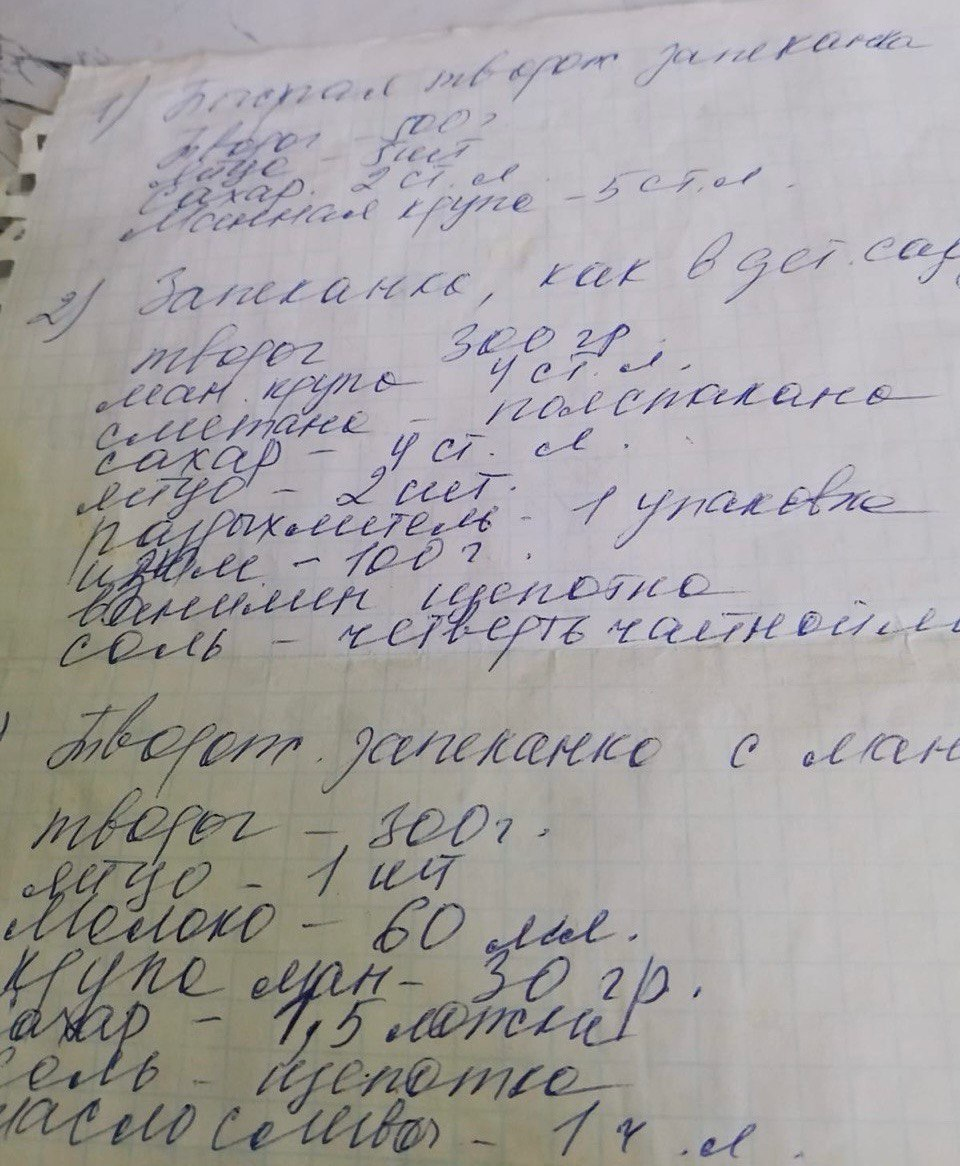 1) Быстрая творож запеканка
Творог - 500 г
Яйцо - 5 шт
Сахар. 2 ст. л
Манная крупа - 5 ст. л.
2) Запеканка, как в дет. сад
творог 300 гр.
ман. крупа 4 ст. л.
сметана - полстакана
сахар - 4 ст. л.
яйцо - 2 шт.
разрыхлитель - 1 упаковка
изюм - 100 г.
ванилин щепотка
соль - четверть чайной л
) Творож. запеканка с ман
творог - 300 г.
яйцо - 1 шт
молоко - 60 мл.
крупа ман - 30 гр.
ахар - 1,5 ложки
соль - щепотка
масло сливоч - 1 ч. л.